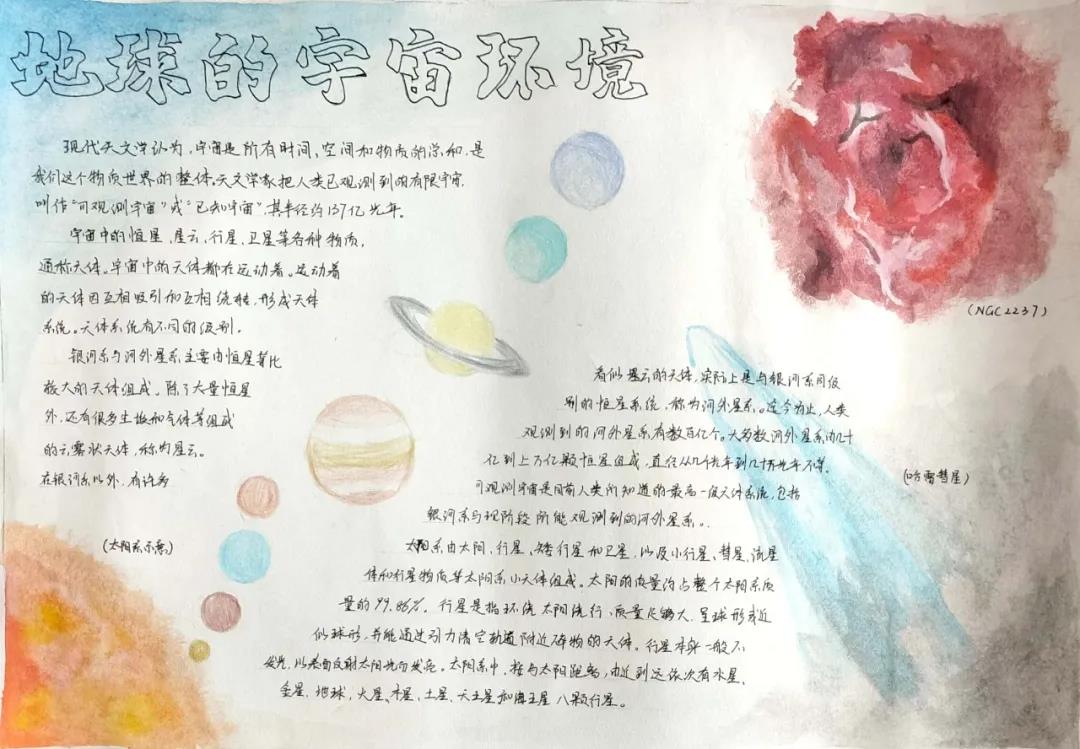 地球的宇宙环境
现代天文学认为,宇宙是所有时间、空间和物质的总和,是
我们这个物质世界的整体。天文学家把人类已观测到的有限宇宙,
叫作“可观测宇宙”或“已知宇宙”,其半径约137亿光年。
宇宙中的恒星、星云、行星、卫星等各种物质,
通称天体。宇宙中的天体都在运动着。运动着
的天体因互相吸引和互相绕转,形成天体
系统。天体系统有不同的级别。
银河系与河外星系主要由恒星等比
较大的天体组成。除了大量恒星
外,还有很多尘埃和气体等组成
的云雾状天体,称为星云。
在银河系以外,有许多
看似星云的天体,实际上是与银河系同级
别的恒星系统,称为河外星系。迄今为止,人类
观测到的河外星系有数百亿个。大多数河外星系由几十
亿到上万亿颗恒星组成,直径从几千光年到几十万光年不等。
可观测宇宙是目前人类所知道的最高一级天体系统,包括
银河系与现阶段所能观测到的河外星系。
太阳系由太阳、行星、矮行星和卫星,以及小行星、彗星、流星
体和行星物质等太阳系小天体组成。太阳的质量约占整个太阳系质
量的99.86%。行星是指环绕太阳流行、质量足够大、呈球形或近
似球形,并能通过引力清空轨道附近碎物的天体。行星本身一般不
发光,以表面反射太阳光而发亮。太阳系中,按与太阳距离,由近到远依次有水星、
金星、地球、火星、木星、土星、天王星和海王星八颗行星。
(NGC2237)
(哈雷彗星)
(太阳系示意)